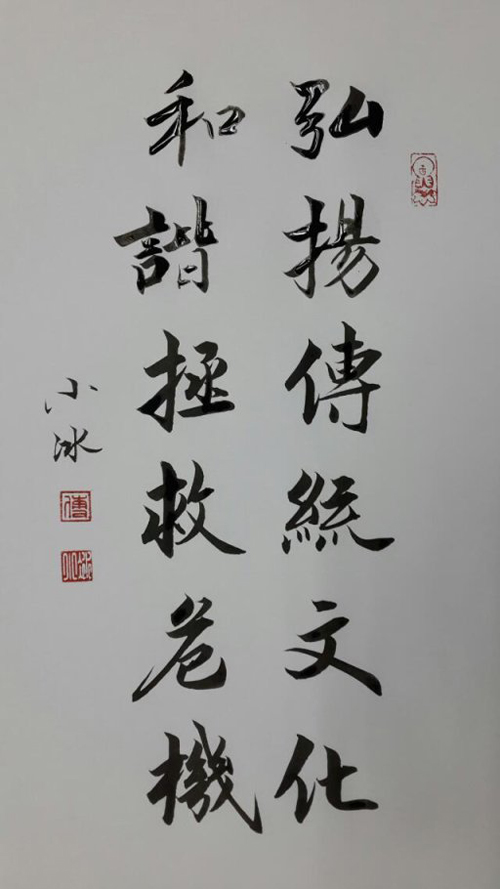 弘揚傳統文化
和諧拯救危機
小冰
傅